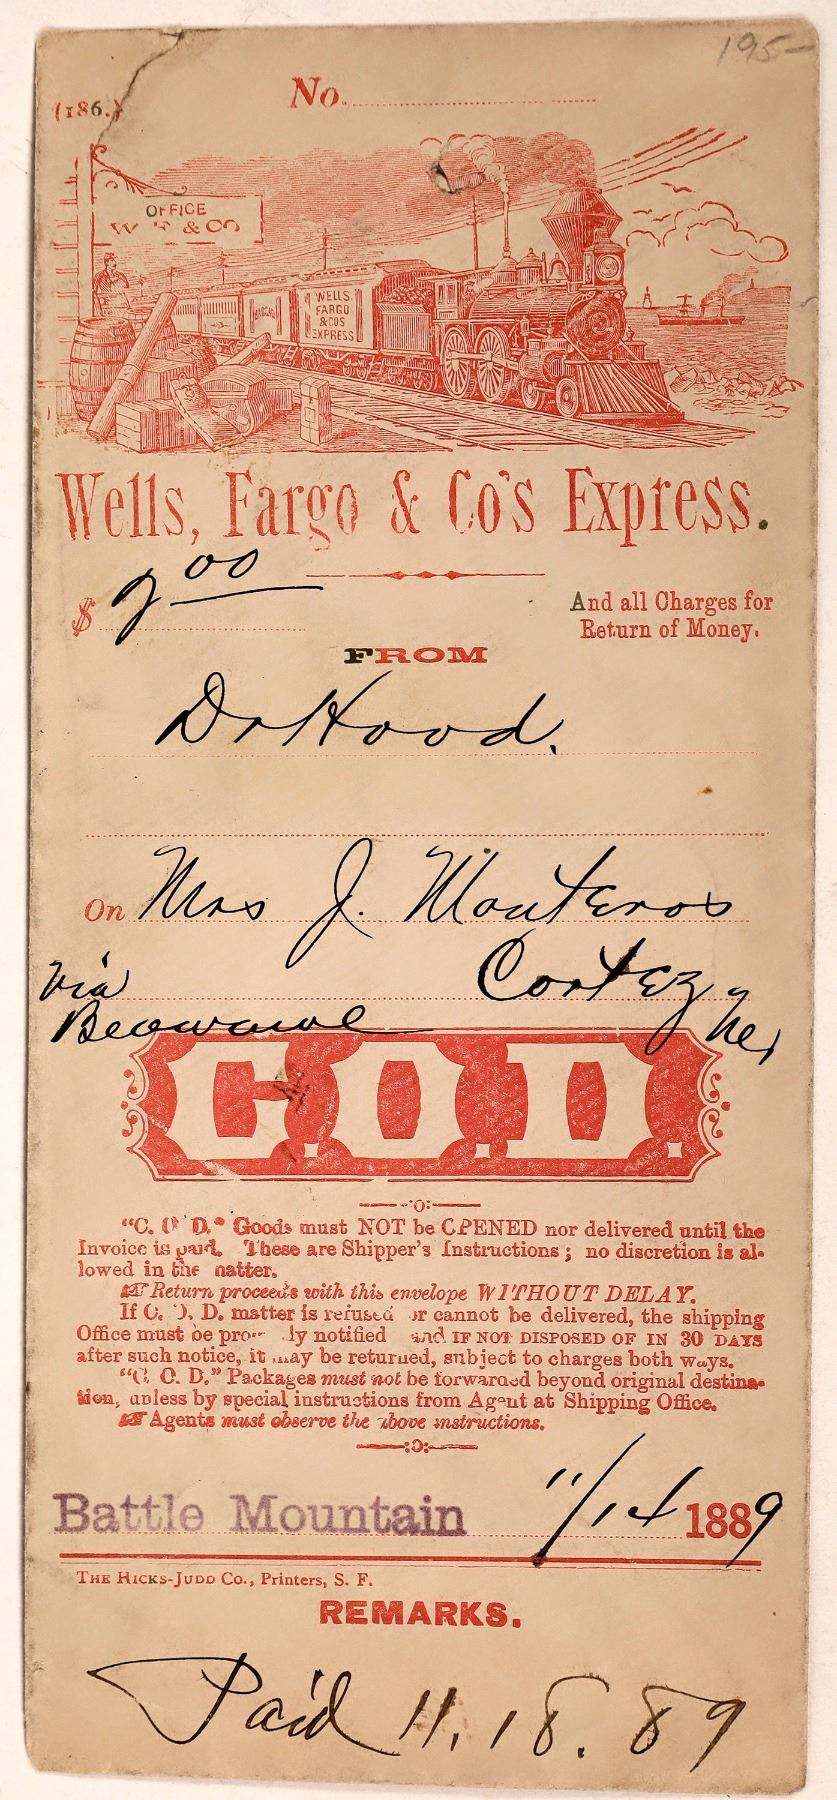 195-
(186.) No.
OFFICE
W F & CO
WELLS
FARGO
& COS
EXPRESS
Wells, Fargo & Co's Express.
$ 2 00
And all Charges for
Return of Money.
FROM
Dr Hood.
On Mrs J. Monteros
via Cortez
Beowawe Nev
C.O.D.
:o:
"C. O. D." Goods must NOT be OPENED nor delivered until the
Invoice is paid. These are Shipper's Instructions; no discretion is al-
lowed in the matter.
☞ Return proceeds with this envelope WITHOUT DELAY.
If C. O. D. matter is refused or cannot be delivered, the shipping
Office must be promptly notified and IF NOT DISPOSED OF IN 30 DAYS
after such notice, it may be returned, subject to charges both ways.
"C. O. D." Packages must not be forwarded beyond original destina-
tion, unless by special instructions from Agent at Shipping Office.
☞ Agents must observe the above instructions.
:o:
Battle Mountain 11/14 1889
THE HICKS-JUDD CO., Printers, S. F.
REMARKS.
Paid 11.18.89